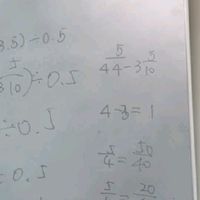 3.5) ÷ 0.5
5/10) ÷ 0.5
÷ 0.5
÷ 0.5
5/44 - 3 5/10
4 - 3 = 1
5/4 = 50/40
5/4 = 20